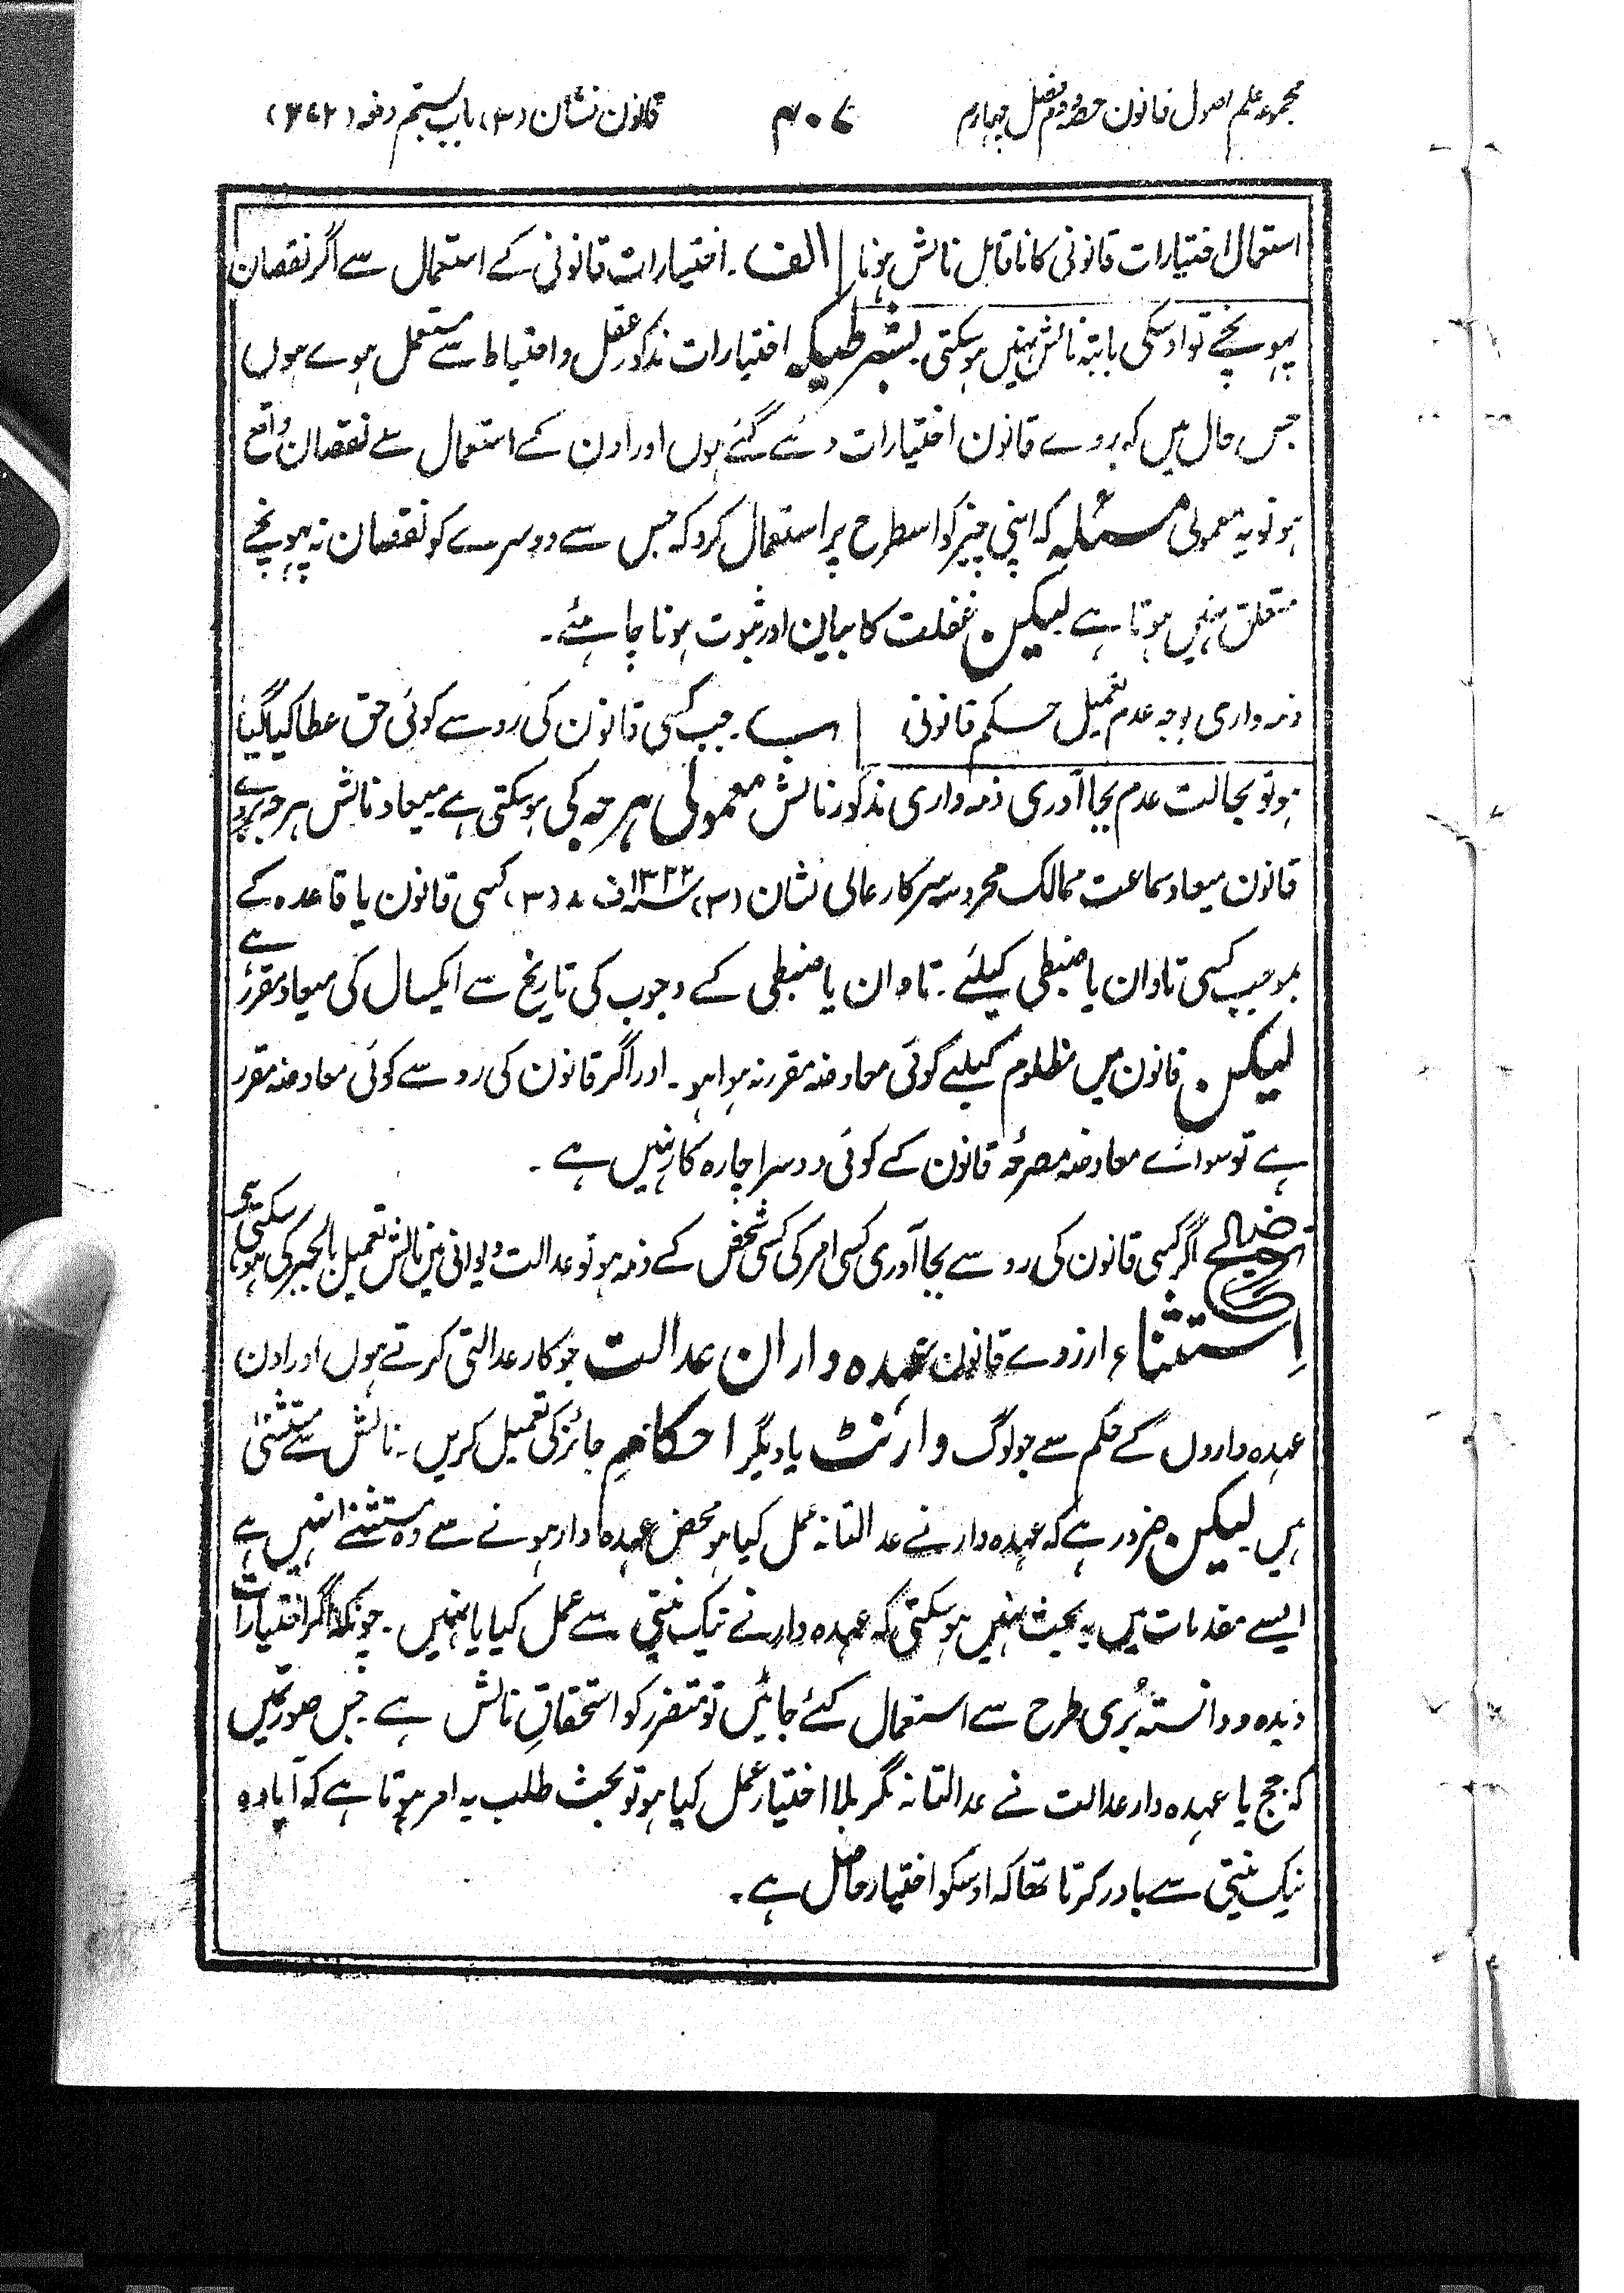 مجموعہ علم اصول قانون حصہ دوم فصل چہارم
۴۰۷
قانون نشان (۳) باب ہشتم دفعہ (۶۷۲)
استعمال اختیارات قانونی کا ناقابل نالش ہونا | الف ۔ اختیارات قانونی کے استعمال سے اگر نقصان
پہونچے تو اوسکی بابتہ نالش نہیں ہوسکتی بشرطیکہ اختیارات مذکور عقل و احتیاط سے مستعمل ہوے ہوں
جس حال میں کہ بروے قانون اختیارات دئے گئے ہوں اور اون کے استعمال سے نقصان واقع
ہو تو یہ معمولی مسئلہ کہ اپنی چیز کو اسطرح پر استعمال کرو کہ جس سے دوسرے کو نقصان نہ پہونچے
متعلق نہیں ہوتا ہے لیکن غفلت کا بیان اور ثبوت ہونا چاہئے ۔
ذمہ داری بوجہ عدم تعمیل حکم قانونی | ب ۔ جب کسی قانون کی رو سے کوئی حق عطا کیا گیا
ہو تو بحالت عدم بجا آوری ذمہ داری مذکور نالش معمولی ہرجہ کی ہوسکتی ہے میعاد نالش ہرجہ بروے
قانون میعاد سماعت ممالک محروسہ سرکار عالی نشان (۳) ۱۳۲۲ سنہ ف ۸ (۳) کسی قانون یا قاعدہ کے
بموجب کسی تاوان یا ضبطی کیلئے ۔ تاوان یا ضبطی کے وجوب کی تاریخ سے ایکسال کی میعاد مقرر ہے
لیکن قانون میں مظلوم کیلیے کوئی معاوضہ مقرر نہ ہوا ہو ۔ اور اگر قانون کی رو سے کوئی معاوضہ مقرر
ہے تو سواے معاوضہ مصرحہ قانون کے کوئی دوسرا چارہ کار نہیں ہے ۔
اگر کسی قانون کی رو سے بجا آوری کسی امر کی کسی شخص کے ذمہ ہو تو عدالت دیوانی میں نالش تعمیل بالجبر کی ہو سکتی ہے
اِستثناء ازروے قانون عہدہ داران عدالت جو کار عدالتی کرتے ہوں اور اون
عہدہ داروں کے حکم سے جو لوگ وارنٹ یا دیگر احکام جائز کی تعمیل کریں ۔ نالش سے مستثنیٰ
ہیں لیکن ضرور ہے کہ عہدہ دار نے عدالتانہ عمل کیا ہو محض عہدہ دار ہونے سے وہ مستثنےٰ نہیں ہے
ایسے مقدمات میں یہ بحث نہیں ہوسکتی کہ عہدہ دار نے نیک نیتی سے عمل کیا یا نہیں ۔ چونکہ اگر اختیارات
دیدہ و دانستہ بُری طرح سے استعمال کئے جائیں تو متضرر کو استحقاقِ نالش ہے جس صورتمیں
کہ جج یا عہدہ دار عدالت نے عدالتانہ مگر بلا اختیار عمل کیا ہو تو بحث طلب یہ امر ہوتا ہے کہ آیا وہ
نیک نیتی سے باور کرتا تھا کہ اوسکو اختیار حاصل ہے ۔